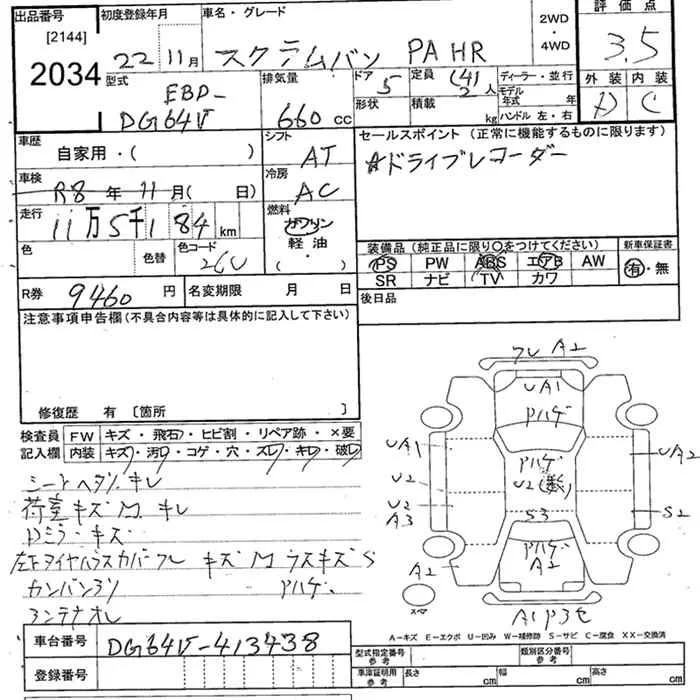 出品番号
[2144]
2034
初度登録年月
22年11月
車名・グレード
スクラムバン PA HR
2WD
・
4WD
評価点
3.5
外装 内装
D C
型式
EBD-
DG64V
排気量
660 cc
ドア
5
形状
定員 (4) 2 人
積載 kg
ディーラー・並行
モデル年式 年
ハンドル 左・右
車歴
自家用・( )
シフト
AT
冷房
AC
燃料
ガソリン
軽油
( ・ )
車検
R8 年 11 月( 日
走行
11万5千184 km
色
色替
色コード
26U
R券 9460 円
名変期限 月 日
セールスポイント (正常に機能するものに限ります)
☆ドライブレコーダー
装備品 (純正品に限り○をつけてください)
PS PW ABS エアB AW
SR ナビ TV カワ
新車保証書
有・無
後日品
注意事項申告欄(不具合内容等は具体的に記入して下さい)
修復歴 有 〔箇所 〕
検査員記入欄
FW キズ・飛石・ヒビ割・リペア跡・×要
内装 キズ・汚・コゲ・穴・スレ・キレ・破
シートヘタリ キレ
荷室キズ凹 キレ
Dミラーキズ
キズ凹 ウスキズS
カンバン
アハゲ
アンテナオレ
フレ A2
UA1
アハゲ
UA1
アハゲ
U2(数)
UA2
U2
U2
A3
S3
S2
アハゲ
A2
A2
スマ
A-キズ E-エクボ U-凹み W-補修跡 S-サビ C-腐食 XX-交換済
車台番号 DG64V-413438
登録番号
型式指定番号
参考
類別区分番号
参考
車庫証明用
参考
長さ cm
幅 cm
高さ cm